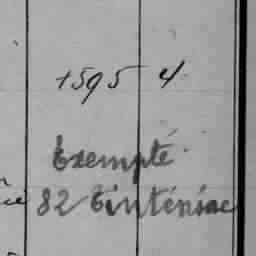 1595 4
Exempté
82 Tinténiac